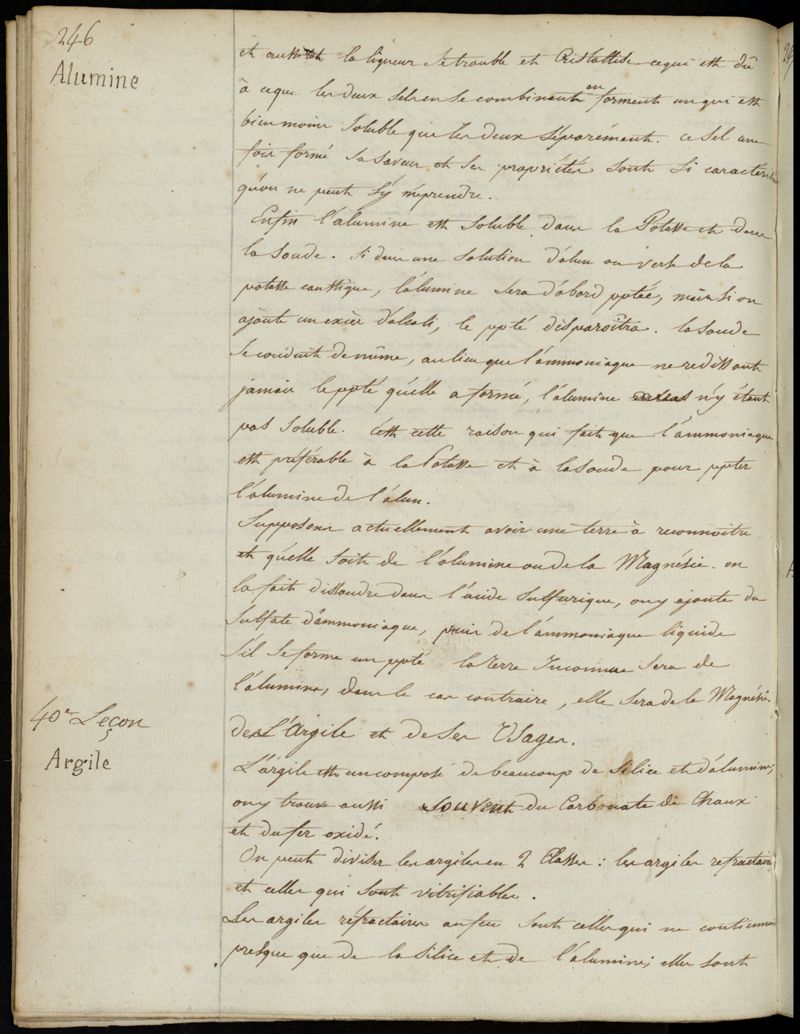 246
Alumine
et aussitot la liqueur se trouble et Cristallise cequi est dû
à ceque les deux sels en se combinant en forment un qui est
bien moins Soluble que les deux Séparément. ce sel une
fois formé sa saveur et ses propriétés sont si caractéris
qu'on ne peut s'y meprendre.
Enfin l'alumine est Soluble dans la Potasse et dans
la Soude. Si dans une Solution d'alun on verse de la
potasse caustique, l'alumine sera d'abord pptée, mais si on
ajoute un excès d'alcali, le ppté disparoîtra. la Soude
se conduit de même, au lieu que l'ammoniaque ne redissout
jamais le ppté qu'elle a formé, l'alumine n'y étant
pas Soluble. C'est cette raison qui fait que l'ammoniaque
est préférable à la Potasse et à la soude pour ppter
l'alumine de l'alun.
Supposons actuellement avoir une terre à reconnoitre
et qu'elle soit de l'alumine ou de la Magnésie. on
la fait dissoudre dans l'acide Sulfurique, on y ajoute du
Sulfate d'ammoniaque, puis de l'ammoniaque liquide
S'il se forme un ppté la terre Inconnue sera de
l'alumine, dans le cas contraire, elle sera de la Magnésie.
40e Leçon
De L'Argile et de Ses Usages.
Argile
L'argile est un composé de beaucoup de Silice et d'alumine;
on y trouve aussi souvent du Carbonate de Chaux
et du fer oxidé.
On peut diviser les argiles en 2 Classes: les argiles refractaires
et celles qui sont vitrifiables.
Les argiles réfractaires au feu sont celles qui ne contiennent
presque que de la Silice et de l'alumine; elles sont